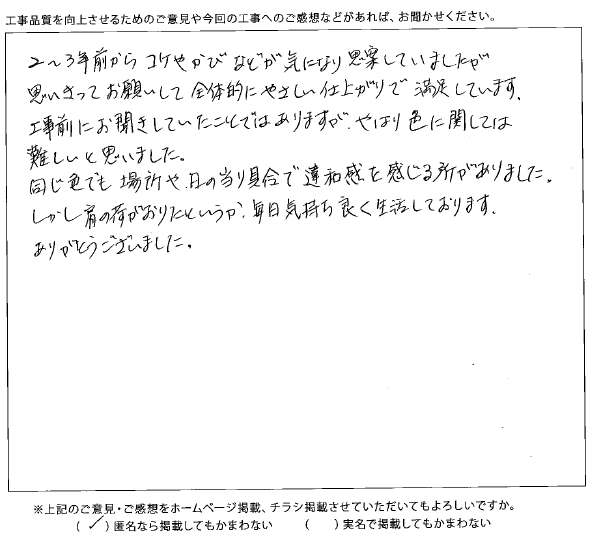 工事品質を向上させるためのご意見や今回の工事へのご感想などがあれば、お聞かせください。
2～3年前から コケやかび などが 気になり 思案していましたが
思いきって お願いして 全体的に やさしい 仕上がりで 満足しています。
工事前に お聞きしていたことでは ありますが、やはり 色に関しては
難しいと思いました。
同じ色でも 場所や、日の当り具合で 違和感を感じる所がありました。
しかし肩の荷がおりたというか、毎日気持ち良く生活しております。
ありがとうございました。
※上記のご意見・ご感想をホームページ掲載、チラシ掲載させていただいてもよろしいですか。
（ ✓ ）匿名なら掲載してもかまわない　　（　　）実名で掲載してもかまわない